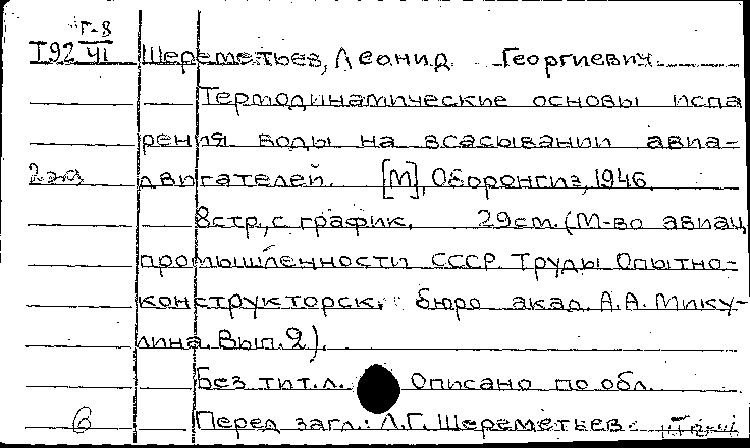 Г-8
Т92 ЧІ Шереметьев, Леонид Георгиевич
Термодинамические основы испа
рения воды на всасывании авиа-
2 экз двигателей. [М], Оборонгиз, 1946.
8стр., с график. 29см. (М-во авиац
промышленности СССР. Труды Опытно-
конструкторск. бюро акад. А.А. Мику-
лина. Вып. 2).
Без тит. л. Описано по обл.
6 Перед загл.: Л.Г. Шереметьев.